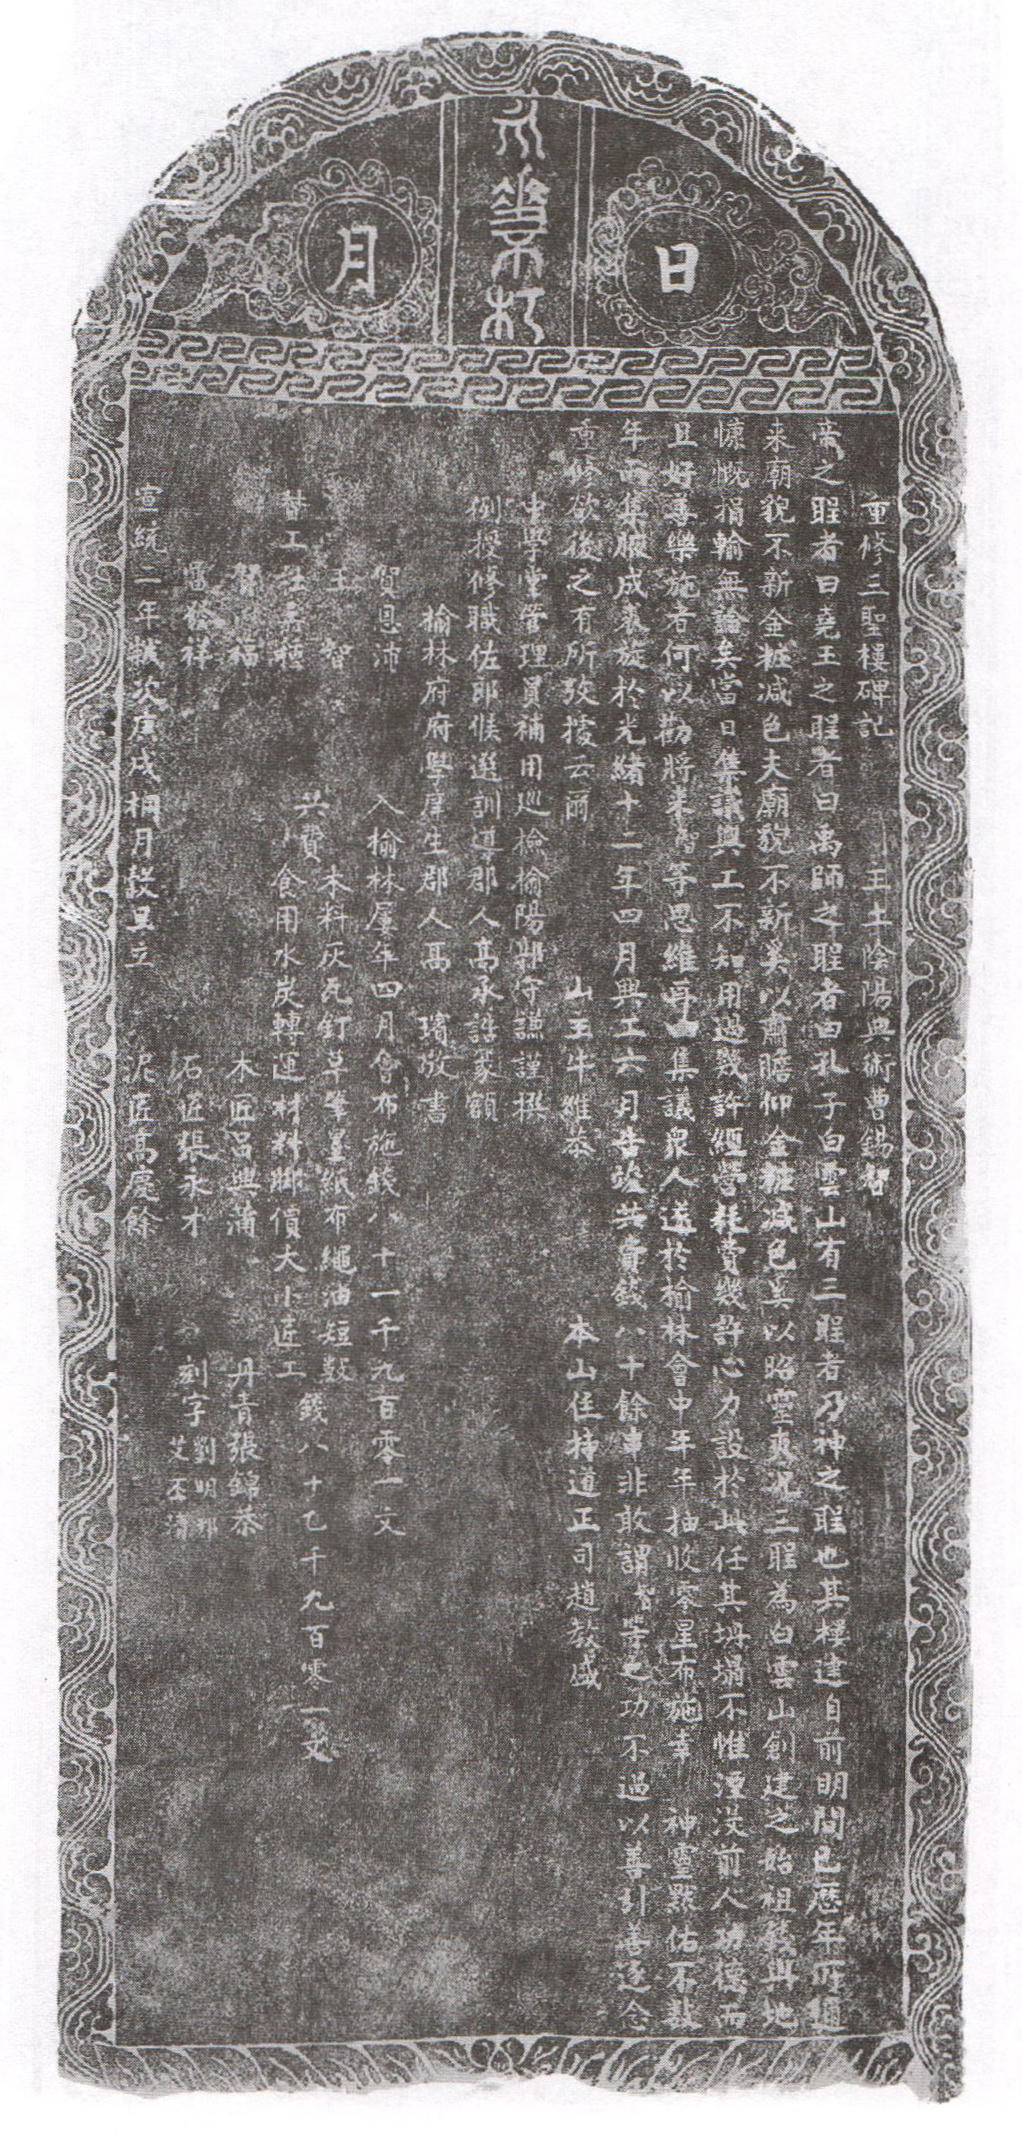 日
月
重修三聖樓碑記 王士陰陽典術曹錫智
帝之聖者曰堯王之聖者曰禹師之聖者曰孔子白雲山有三聖者乃神之聖也其樓建自前明間已歷年所邇
來廟貌不新金粧减色夫廟貌不新奚以肅瞻仰金粧减色奚以昭靈爽况三聖為白雲山創建之始祖歟此地
慷慨捐輸無論矣當日集議興工不知用過幾許經營耗費幾許心力設於此任其坍塌不惟湮没前人功德而
且好善樂施者何以勸將來智等思維再三集議衆人遂於榆林會中年年抽收零星布施幸 神靈默佑不數
年而集腋成裘旋於光緒十二年四月興工六月告竣共費錢八十餘千非敢謂智等之功不過以善引善遂念
重修欲後之有所攷據云爾 山主牛維泰 本山住持道正司趙教盛
中學堂管理員補用巡檢榆陽郭守謙謹撰
例授修職佐郎候選訓導郡人高承誥篆額
榆林府府學庠生郡人高 璸敬書
賀恩沛 入榆林屢年四月會布施錢八十一千九百零一文
王 智 木料灰瓦釘草筆墨紙布繩油短數
共費 錢八十乙千九百零一文
督工 食用水炭轉運材料腳價大小匠工
福 木匠呂興蒲 丹青張錦泰
祥 石匠張永才 刻字 劉明 艾
宣統二年歲次庚戌桐月榖旦立 泥匠高慶餘